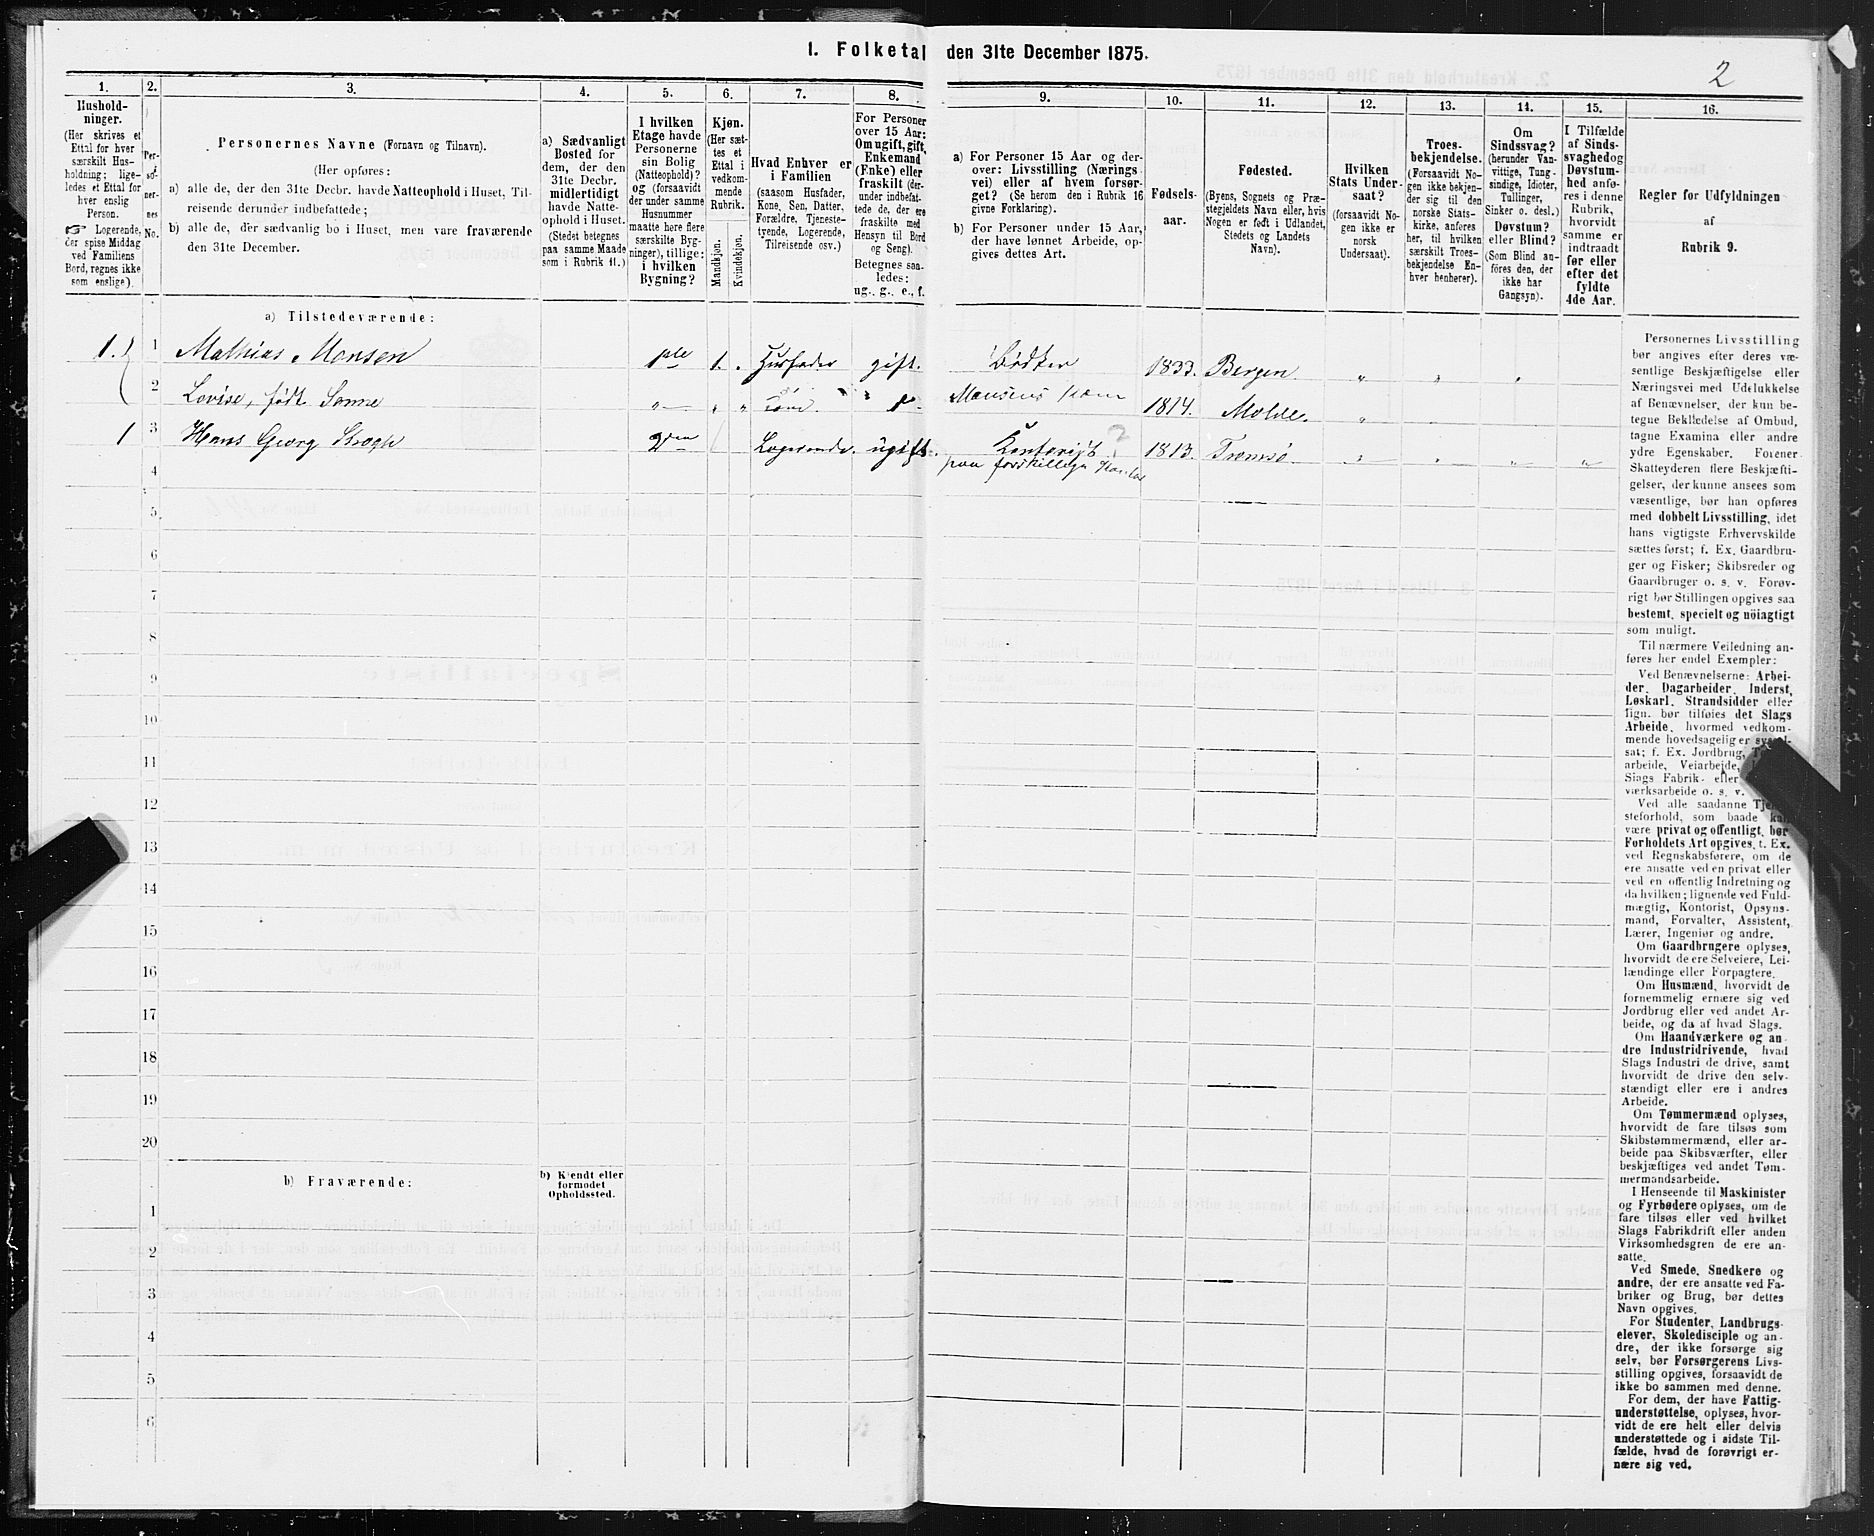 1. Folketal den 31te December 1875.
2
1. 2. 3. 4. 5. 6. 7. 8. 9. 10. 11. 12. 13. 14. 15. 16.
Hushold-
ninger.
(Her skrives et
Ettal for hver
særskilt Hus-
holdning; lige-
ledes et Ettal for
hver enslig
Person.
☞ Logerende,
der spise Middag
ved Familiens
Bord, regnes ikke
som enslige).
Per-
so-
ner-
nes
No.
Personernes Navne (Fornavn og Tilnavn).
(Her opføres:
a) alle de, der den 31te Decbr. havde Natteophold i Huset, Til-
reisende derunder indbefattede;
b) alle de, der sædvanlig bo i Huset, men vare fraværende
den 31te December.
a) Sædvanligt
Bosted for
dem, der den
31te Decbr.
midlertidigt
havde Natte-
ophold i Huset.
(Stedet betegnes
paa samme Maade
som i Rubrik 11.)
I hvilken
Etage havde
Personerne
sin Bolig
(Natteophold)?
og (forsaavidt
der under samme
Husnummer
maatte høre flere
særskilte Byg-
ninger), tillige:
i hvilken
Bygning?
Kjøn.
(Her sæt-
tes et
Ettal i
vedkom-
mende
Rubrik.
Mandkjøn.
Kvindekjøn.
Hvad Enhver er
i Familien
(saasom Husfader,
Kone, Søn, Datter,
Forældre, Tjeneste-
tyende, Logerende,
Tilreisende osv.)
For Personer
over 15 Aar:
Om ugift, gift,
Enkemand
(Enke) eller
fraskilt (der-
under indbefat-
tede de, der ere
fraskilte med
Hensyn til Bord
og Seng).
Betegnes saa-
ledes:
ug., g., e., f.
a) For Personer 15 Aar og der-
over: Livsstilling (Nærings-
vei) eller af hvem forsør-
get? (Se herom den i Rubrik 16
givne Forklaring).
b) For Personer under 15 Aar,
der have lønnet Arbeide, op-
gives dettes Art.
Fødsels-
aar.
Fødested.
(Byens, Sognets og Præ-
stegjeldets Navn eller, hvis
Nogen er født i Udlandet,
Stedets og Landets
Navn).
Hvilken
Stats Under-
saat?
(forsaavidt No-
gen ikke er
norsk
Undersaat).
Troes-
bekjendelse.
(Forsaavidt No-
gen ikke bekjen-
der sig til den
norske Stats-
kirke, anføres
her, til hvilken
særskilt Troes-
bekjendelse En-
hver henhører).
Om
Sindssvag?
(herunder Van-
vittige, Tung-
sindige, Idioter,
Tullinger,
Sinker o. desl.)
Døvstum?
eller Blind?
(Som Blind an-
føres den, der
ikke har
Gangsyn).
I Tilfælde
af Sinds-
svaghed og
Døvstum-
hed anfø-
res i denne
Rubrik,
hvorvidt
samme er
indtraadt
før eller
efter det
fyldte
4de Aar.
Regler for Udfyldningen
af
Rubrik 9.
a) Tilstedeværende:
1. 1 Mathias Monsen 1ste 1. Husfader gift. Bødker 1833. Bergen " " "
2 Lovise, født Sanne " " " Kone. Monsens Kone 1814. Molde. "
1 3 Hans Georg 2den Logerende. ugift. Kontorist ? 1813. Tromsø " " " "
paa forskellige
4
5
6
7
8
9
10
11
12
13
14
15
16
17
18
19
20
b) Fraværende:
b) Kjendt eller
formodet
Opholdssted.
1
2
3
4
5
6
Personernes Livsstilling
bør angives efter deres væ-
sentlige Beskjæftigelse eller
Næringsvei med Udelukkelse
af Benævnelser, der kun be-
tegne Beklædelse af Ombud,
tagne Examina eller andre
ydre Egenskaber. Forener
Skatteyderen flere Beskjæfti-
gelser, der kunne ansees som
væsentlige, bør han opføres
med dobbelt Livsstilling, idet
hans vigtigste Erhvervskilde
sættes først; f. Ex. Gaardbru-
ger og Fisker; Skibsreder og
Gaardbruger o. s. v. Forøv-
rigt bør Stillingen opgives saa
bestemt, specielt og nøiagtigt
som muligt.
Til nærmere Veiledning an-
føres her endel Exempler:
Ved Benævnelserne: Arbei-
der, Dagarbeider, Inderst,
Løskarl, Strandsidder eller
lign. bør tilføies det Slags
Arbeide, hvormed vedkom-
mende hovedsagelig er syssel-
sat; f. Ex. Jordbrug,
arbeide, Veiarbeide,
Slags Fabrik- eller
værksarbeide o. s. v.
Ved alle saadanne Tjene-
steforhold, som baade kan
være privat og offentligt, bør
Forholdets Art opgives, f. Ex.
ved Regnskabsførere, om de
ere ansatte ved en privat eller
ved en offentlig Indretning og
da hvilken; lignende ved Fuld-
mægtig, Kontorist, Opsyns-
mand, Forvalter, Assistent,
Lærer, Ingeniør og andre.
Om Gaardbrugere oplyses,
hvorvidt de ere Selveiere, Lei-
lændinge eller Forpagtere.
Om Husmænd, hvorvidt de
fornemmelig ernære sig ved
Jordbrug eller ved andet Ar-
beide, og da af hvad Slags.
Om Haandværkere og an-
dre Industridrivende, hvad
Slags Industri de drive, samt
hvorvidt de drive den selv-
stændigt eller ere i andres
Arbeide.
Om Tømmermænd oplyses,
hvorvidt de fare tilsøs som
Skibstømmermænd, eller ar-
beide paa Skibsværfter, eller
beskjæftiges ved andet Tøm-
mermandsarbeide.
I Henseende til Maskinister
og Fyrbødere oplyses, om de
fare tilsøs eller ved hvilket
Slags Fabrikdrift eller anden
Virksomhedsgren de ere an-
satte.
Ved Smede, Snedkere og
andre, der ere ansatte ved Fa-
briker og Brug, bør dettes
Navn opgives.
For Studenter, Landbrugs-
elever, Skoledisciple og an-
dre, der ikke forsørge sig
selv, bør Forsørgerens Livs-
stilling opgives, forsaavidt de
ikke bo sammen med denne.
For dem, der have Fattig-
understøttelse, oplyses, hvor-
vidt de ere helt eller delvis
understøttede og i sidste Til-
fælde, hvad de forøvrigt er-
nære sig ved.